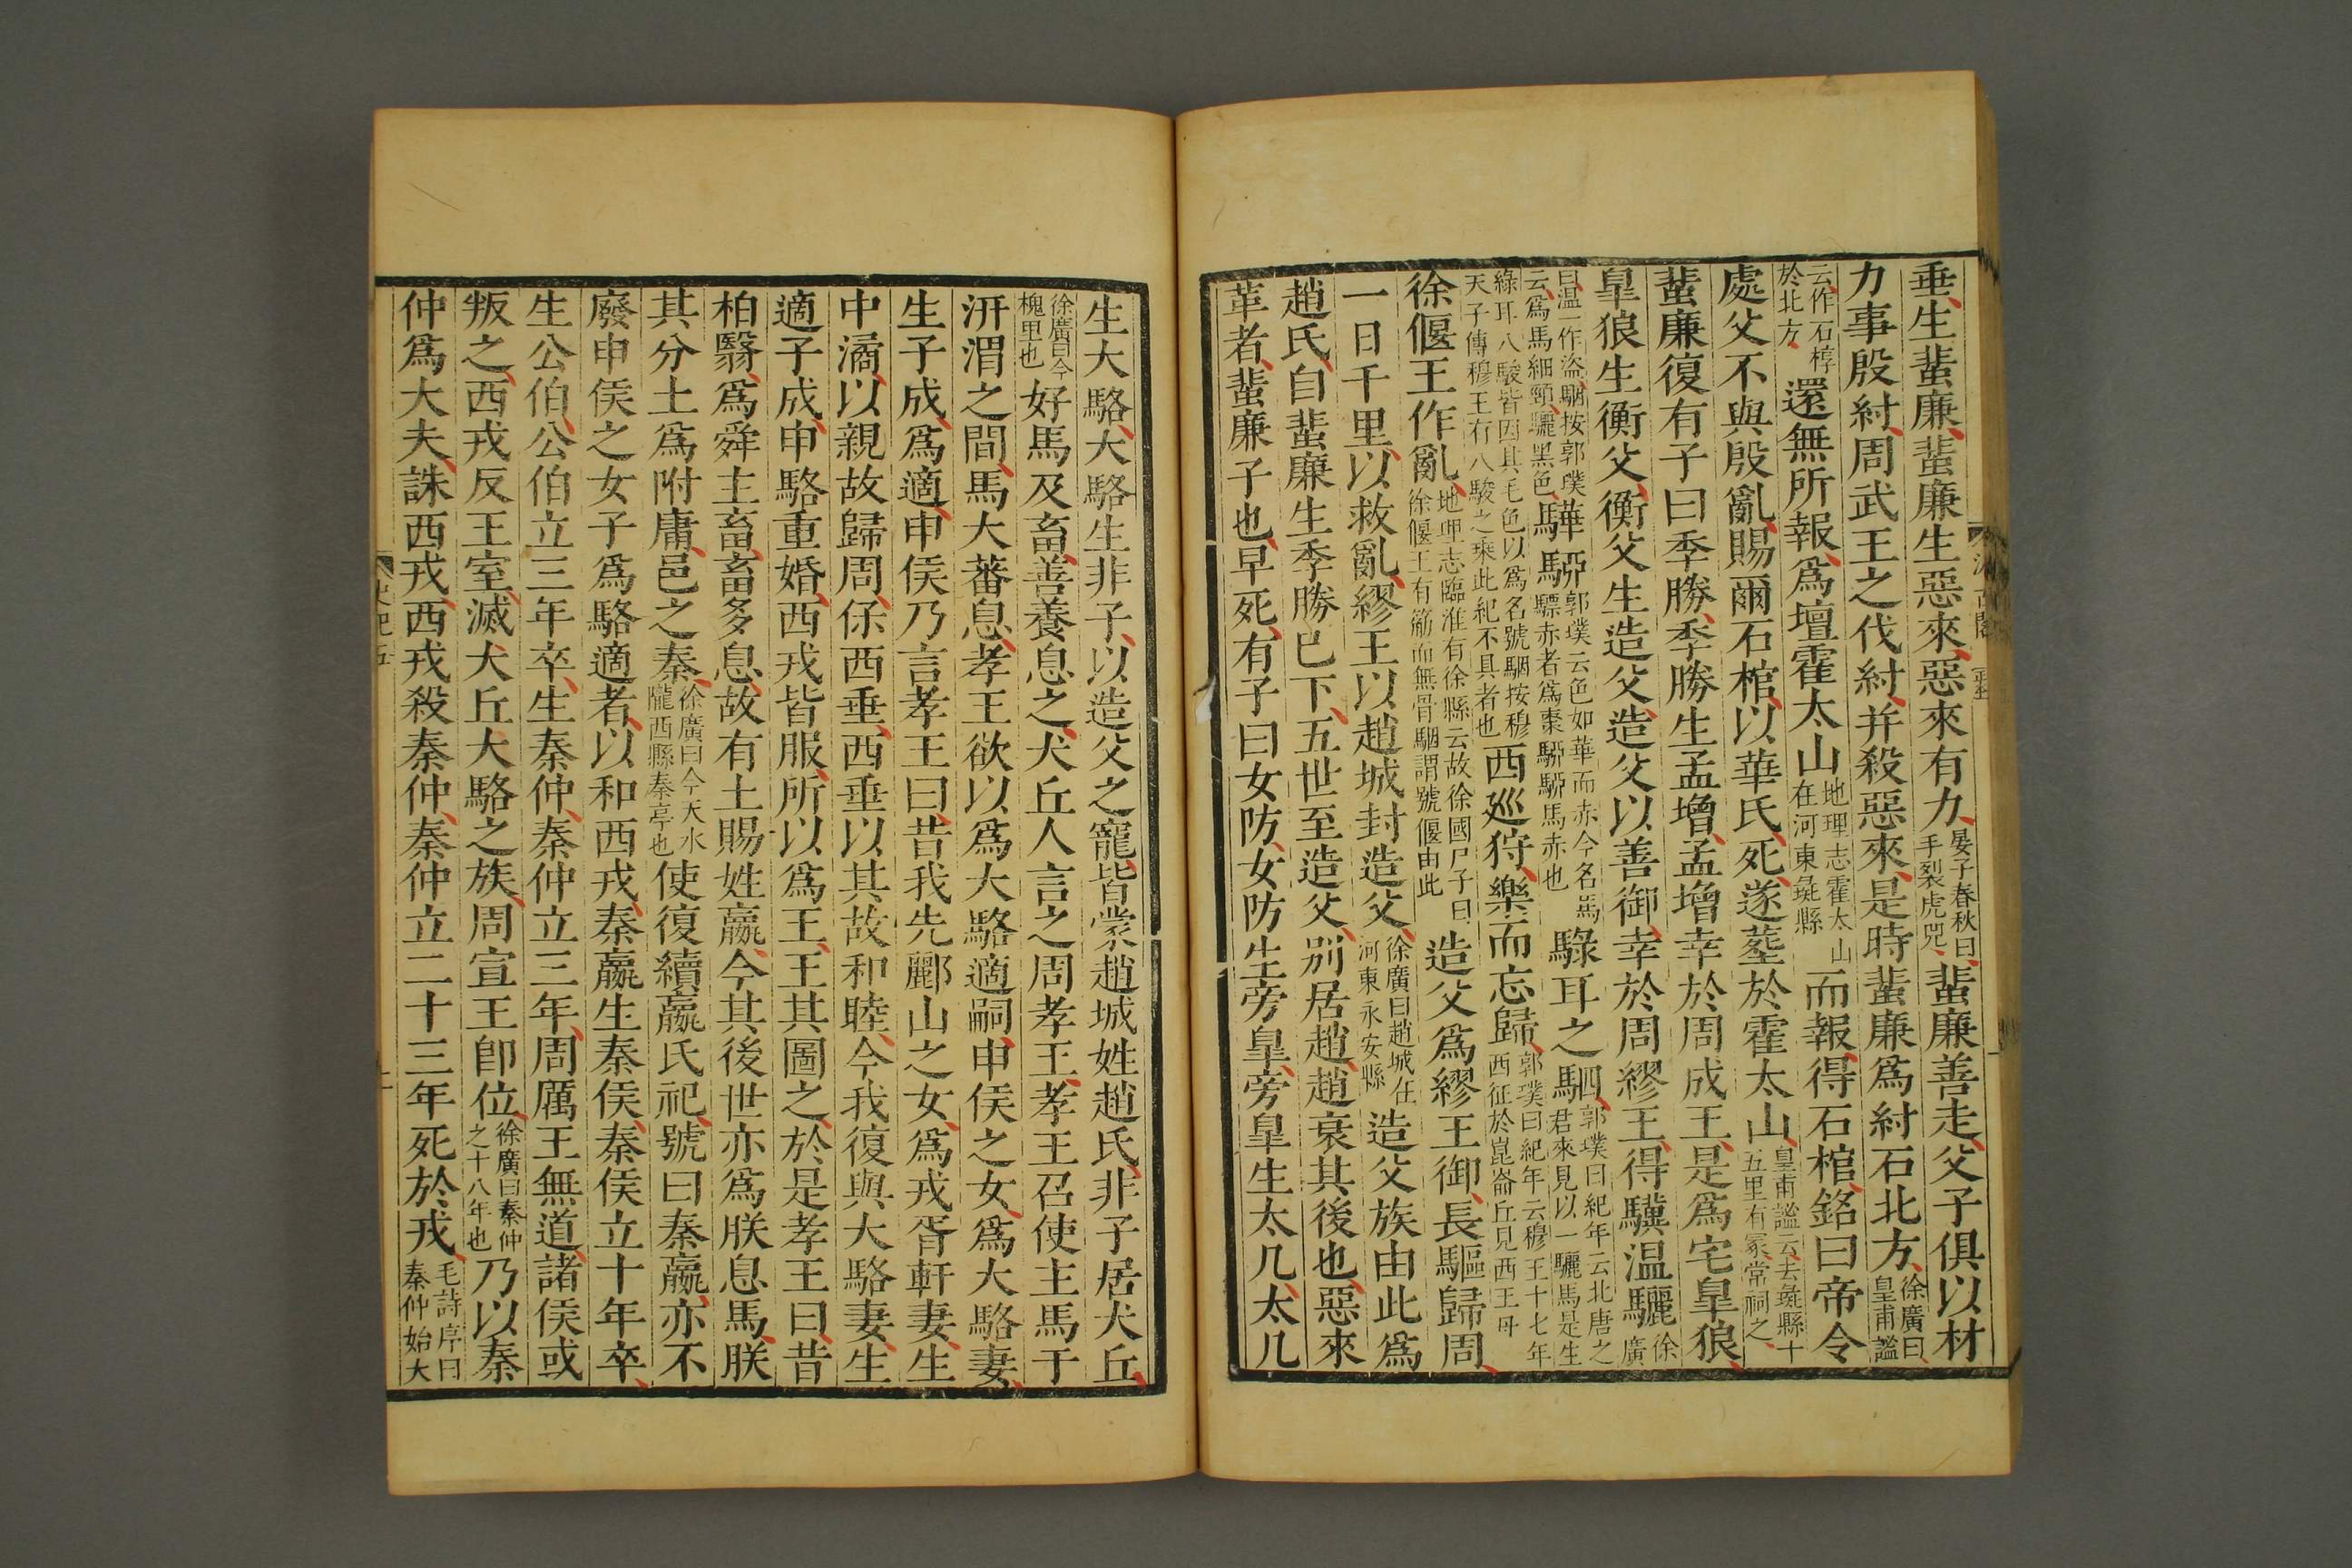 垂生蜚廉蜚廉生惡來惡來有力晏子春秋曰手裂虎兕蜚廉善走父子俱以材
力事殷紂周武王之伐紂并殺惡來是時蜚廉爲紂石北方徐廣曰皇甫謐
云作石椁於北方還無所報爲壇霍太山地理志霍太山在河東彘縣而報得石棺銘曰帝令
處父不與殷亂賜爾石棺以華氏死遂葬於霍太山皇甫謐云去彘縣十五里有冢常祠之
蜚廉復有子曰季勝季勝生孟增孟增幸於周成王是爲宅皐狼
皐狼生衡父衡父生造父造父以善御幸於周繆王得驥温驪徐廣
曰温一作盜駰按郭璞云爲馬細頸驪黑色驊騮郭璞云色如華而赤今名馬驃赤者爲棗騮騮馬赤也騄耳之駟郭璞曰紀年云北唐之君來見以一驪馬是生
綠耳八駿皆因其毛色以爲名號駰按穆天子傳穆王有八駿之乘此紀不具者也西巡狩樂而忘歸郭璞曰紀年云穆王十七年西征於崑崙丘見西王母
徐偃王作亂地理志臨淮有徐縣云故徐國尸子曰徐偃王有筋而無骨駰謂號偃由此造父爲繆王御長驅歸周
一日千里以救亂繆王以趙城封造父徐廣曰趙城在河東永安縣造父族由此爲
趙氏自蜚廉生季勝已下五世至造父別居趙趙衰其後也惡來
革者蜚廉子也早死有子曰女防女防生旁皐旁皐生太几太几
生大駱大駱生非子以造父之寵皆蒙趙城姓趙氏非子居犬丘
徐廣曰今槐里也好馬及畜善養息之犬丘人言之周孝王孝王召使主馬于
汧渭之間馬大蕃息孝王欲以爲大駱適嗣申侯之女爲大駱妻
生子成爲適申侯乃言孝王曰昔我先酈山之女爲戎胥軒妻生
中潏以親故歸周保西垂西垂以其故和睦今我復與大駱妻生
適子成申駱重婚西戎皆服所以爲王王其圖之於是孝王曰昔
柏翳爲舜主畜畜多息故有土賜姓嬴今其後世亦爲朕息馬朕
其分土爲附庸邑之秦徐廣曰今天水隴西縣秦亭也使復續嬴氏祀號曰秦嬴亦不
廢申侯之女子爲駱適者以和西戎秦嬴生秦侯秦侯立十年卒
生公伯公伯立三年卒生秦仲秦仲立三年周厲王無道諸侯或
叛之西戎反王室滅犬丘大駱之族周宣王卽位徐廣曰秦仲之十八年也乃以秦
仲爲大夫誅西戎西戎殺秦仲秦仲立二十三年死於戎毛詩序曰秦仲始大
史記五